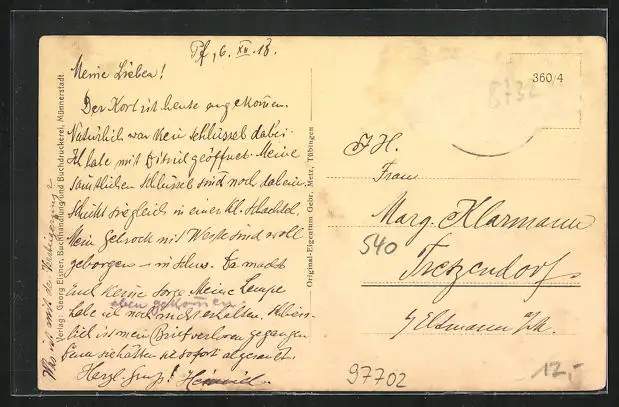 Pf, 6. XII. 18.
Meine Lieben!
Der Korb ist heute angekom̄en.
Natürlich war kein Schlüssel dabei.
Ich habe mit Dietrich geöffnet. Meine
sämtlichen Schlüssel sind noch daheim.
Schickt sie gleich in einer kl. Schachtel.
Mein Gehrock mit Weste sind wohl
geborgen – in Schw. Da macht
Euch keine Sorge. Meine Lampe
eben gekom̄en
habe ich noch nicht erhalten. Schliess-
lich ist mein Brief verloren gegangen.
Denn sie hätten sie sofort abgesandt.
Herzl. Gruß! Heinrich.
Wie ist mit der
Verlag: Georg Elsner, Buchhandlung und Buchdruckerei, Münnerstadt
Original-Eigentum Gebr. Metz, Tübingen
360/4
8732
Frau
Marg. Klarmann
540
Tretzendorf
Eltmann
97702
12,-